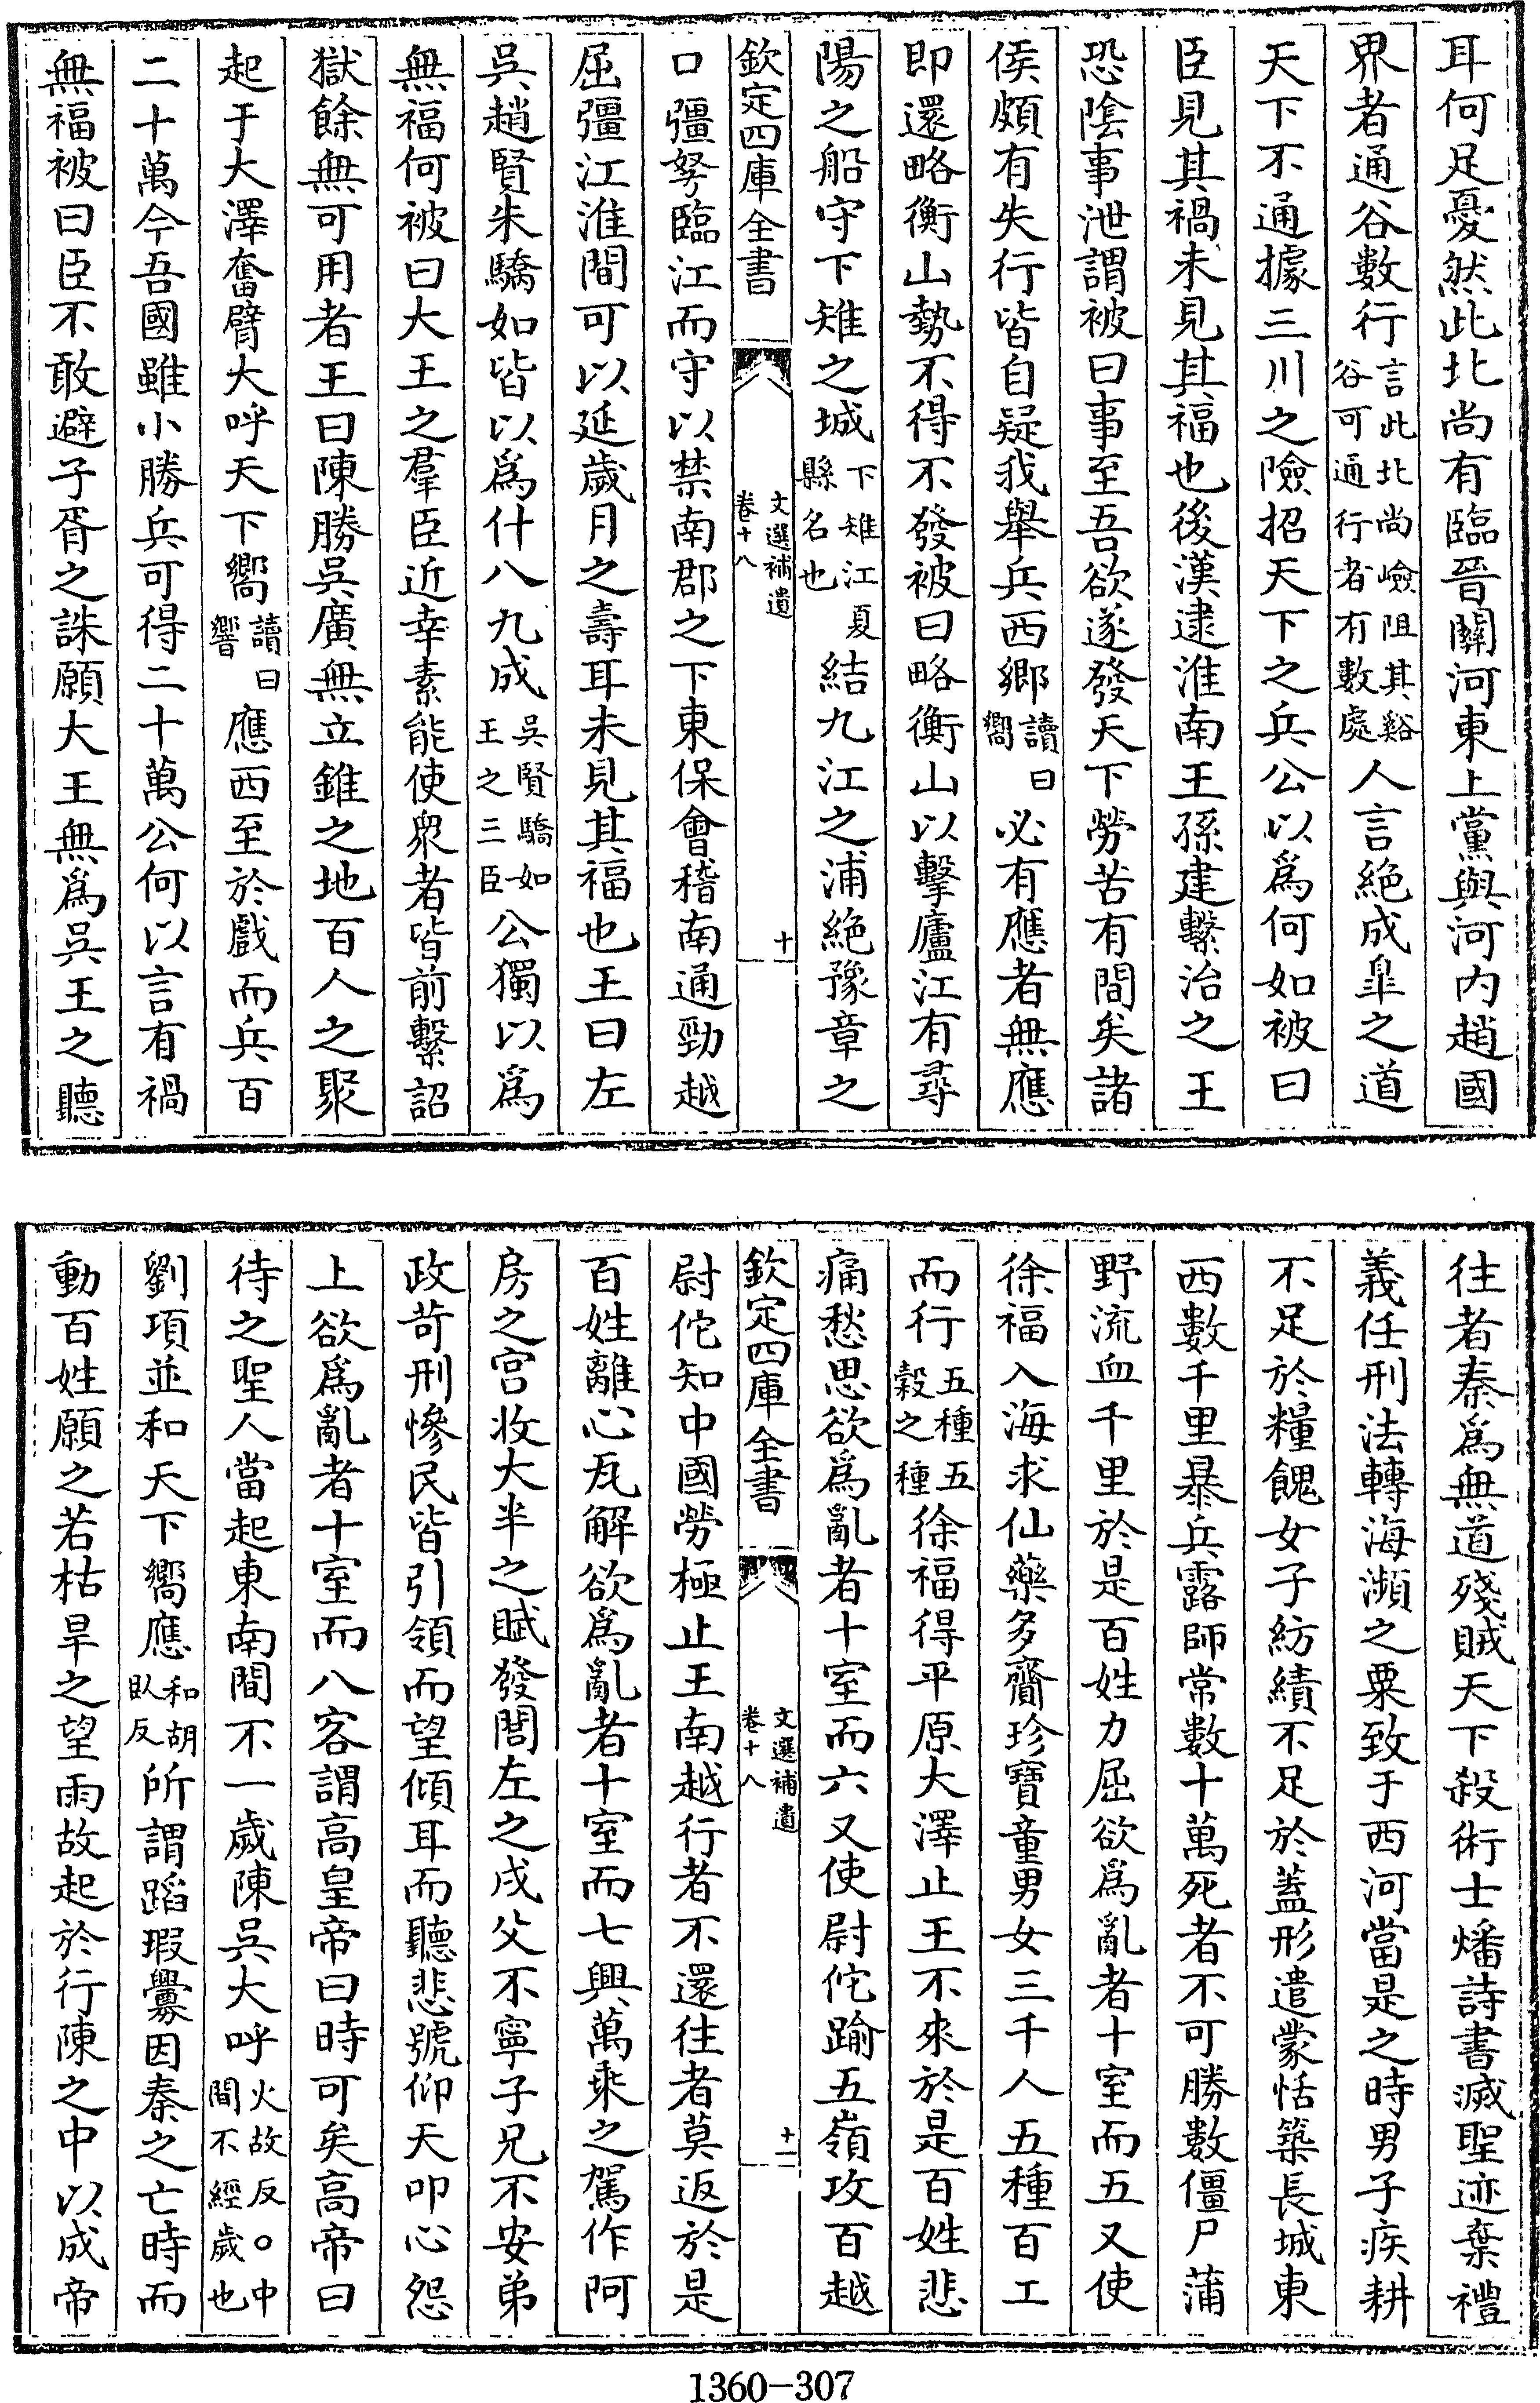 耳何足憂然此北尚有臨晉關河東上黨與河内趙國
界者通谷數行言此北尚嶮阻其谿谷可通行者有數處人言絶成臯之道
天下不通據三川之險招天下之兵公以為何如被曰
臣見其禍未見其福也後漢逮淮南王孫建繫治之王
恐隂事泄謂被曰事至吾欲遂發天下勞苦有間矣諸
侯頗有失行皆自疑我舉兵西鄉讀曰嚮必有應者無應
即還略衡山勢不得不發被曰略衡山以擊廬江有尋
陽之船守下雉之城下雉江夏縣名也結九江之浦絶豫章之
欽定四庫全書
文選補遺
卷十八
十
口彊弩臨江而守以禁南郡之下東保會稽南通勁越
屈彊江淮間可以延歲月之壽耳未見其福也王曰左
吳趙賢朱驕如皆以為什八九成吳賢驕如王之三臣公獨以為
無福何被曰大王之羣臣近幸素能使衆者皆前繫詔
獄餘無可用者王曰陳勝吳廣無立錐之地百人之聚
起于大澤奮臂大呼天下嚮讀曰響應西至於戲而兵百
二十萬今吾國雖小勝兵可得二十萬公何以言有禍
無福被曰臣不敢避子胥之誅願大王無為吳王之聽
往者秦為無道殘賊天下殺術士燔詩書滅聖迹棄禮
義任刑法轉海瀕之粟致于西河當是之時男子疾耕
不足於糧餽女子紡績不足於葢形遣蒙恬築長城東
西數千里暴兵露師常數十萬死者不可勝數僵尸蒲
野流血千里於是百姓力屈欲為亂者十室而五又使
徐福入海求仙藥多齎珍寶童男女三千人五種百工
而行五種五穀之種徐福得平原大澤止王不來於是百姓悲
痛愁思欲為亂者十室而六又使尉佗踰五嶺攻百越
欽定四庫全書
文選補遺
卷十八
十一
尉佗知中國勞極止王南越行者不還往者莫返於是
百姓離心瓦解欲為亂者十室而七興萬乘之駕作阿
房之宫收大半之賦發閭左之戍父不寧子兄不安弟
政苛刑慘民皆引領而望傾耳而聽悲號仰天叩心怨
上欲為亂者十室而八客謂高皇帝曰時可矣高帝曰
待之聖人當起東南間不一歲陳吳大呼火故反○中間不經歲也
劉項並和天下嚮應和胡臥反所謂蹈瑕釁因秦之亡時而
動百姓願之若枯旱之望雨故起於行陳之中以成帝
1360-307